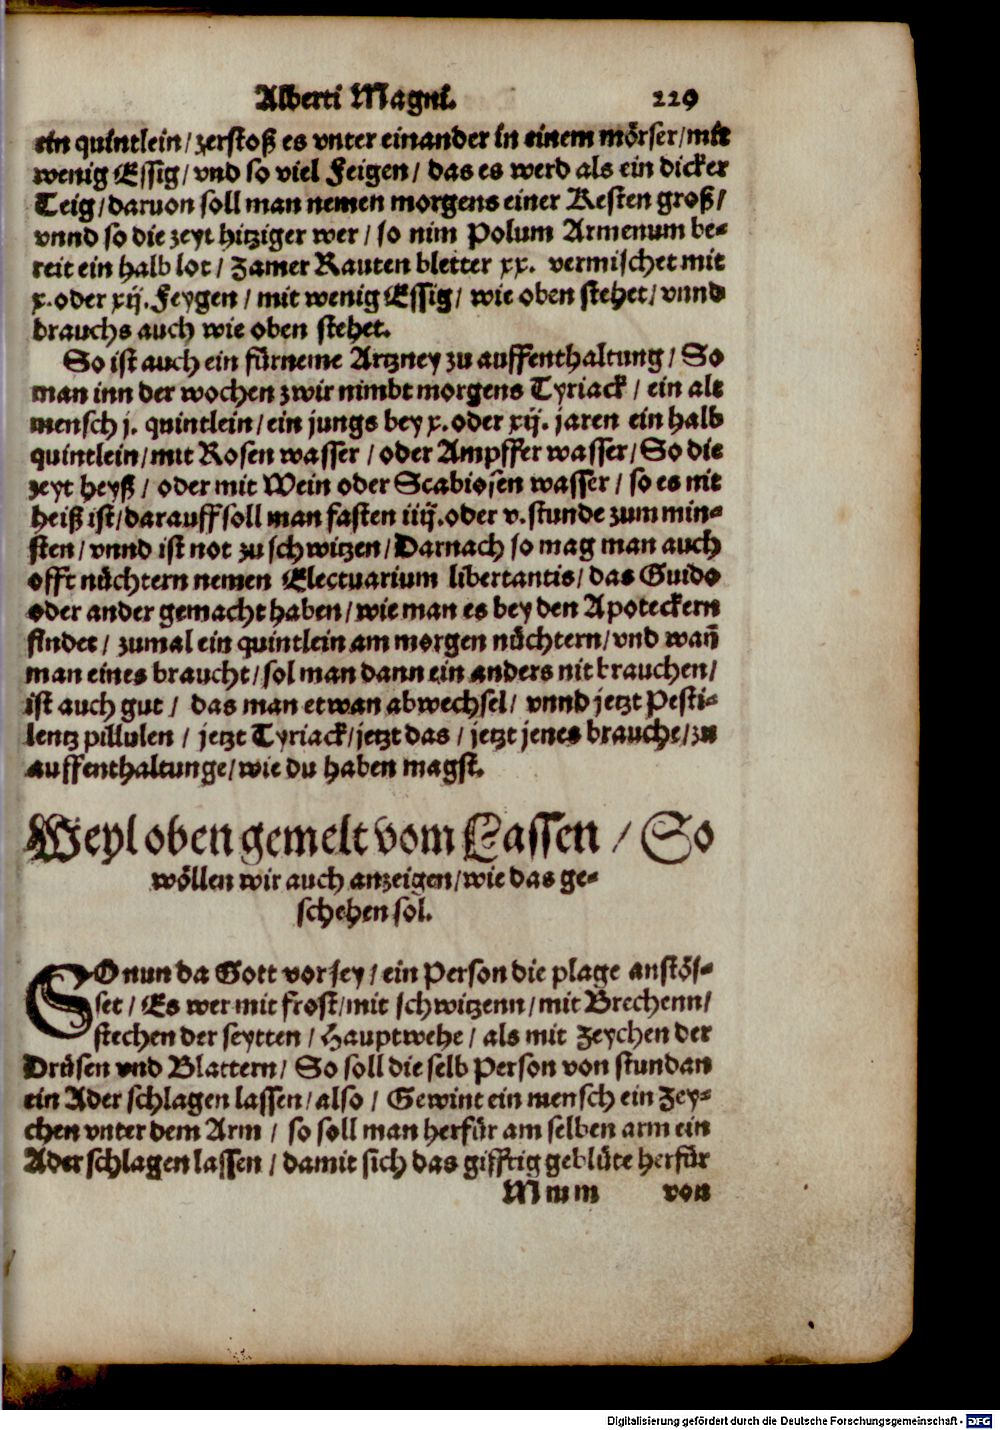 Alberti Magni. 229
ein quintlein/zerstoß es vnter einander in einem mörser/mit
wenig Essig/vnd so viel Feigen/ das es werd als ein dicker
Teig/daruon soll man nemen morgens einer Kesten groß/
vnnd so die zeyt hitziger wer/ so nim Polum Armenum be-
reit ein halb lot/ Zamer Rauten bletter xx. vermischet mit
x. oder xij. Feygen/ mit wenig Essig/ wie oben stehet/ vnnd
brauchs auch wie oben stehet.
So ist auch ein fürneme Artzney zu auffenthaltung/ So
man inn der wochen zwir nimbt morgens Tyriack/ ein alt
mensch j. quintlein/ein jungs bey x. oder xij. jaren ein halb
quintlein/mit Rosen wasser/oder Ampffer wasser/So die
zeyt heyß/ oder mit Wein oder Scabiosen wasser/ so es nit
heiß ist/darauff soll man fasten iiij. oder v. stunde zum min-
sten/vnnd ist not zu schwitzen/Darnach so mag man auch
offt nüchtern nemen Electuarium libertantis/das Guido
oder ander gemacht haben/wie man es bey den Apoteckern
findet/ zumal ein quintlein am morgen nüchtern/vnd wañ
man eines braucht/sol man dann ein anders nit brauchen/
ist auch gut/ das man etwan abwechsel/ vnnd jetzt Pesti-
lentz pillulen/ jetzt Tyriack/jetzt das/ jetzt jenes brauche/zu
auffenthaltunge/wie du haben magst.
Weyl oben gemelt vom Lassen/So
wöllen wir auch anzeigen/wie das ge-
schehen sol.
SO nun da Gott vor sey/ein Person die plage anstös-
set/Es wer mit frost/mit schwitzenn/mit Brechenn/
stechen der seytten/Hauptwehe/als mit Zeychen der
Drüsen vnd Blattern/So soll die selb Person von stundan
ein Ader schlagen lassen/also/ Gewint ein mensch ein Zey-
chen vnter dem Arm/ so soll man herfür am selben arm ein
Ader schlagen lassen/damit sich das gifftig geblüte herfür
Mmm von
Digitalisierung gefördert durch die Deutsche Forschungsgemeinschaft - DFG